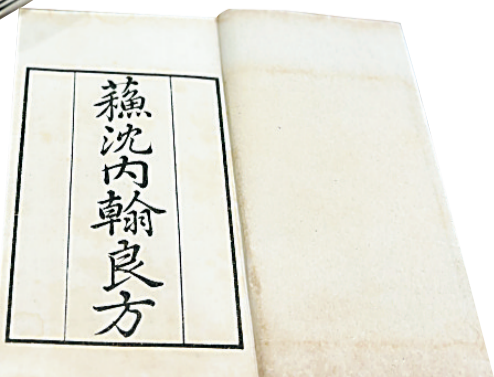 蘓沈内翰良方